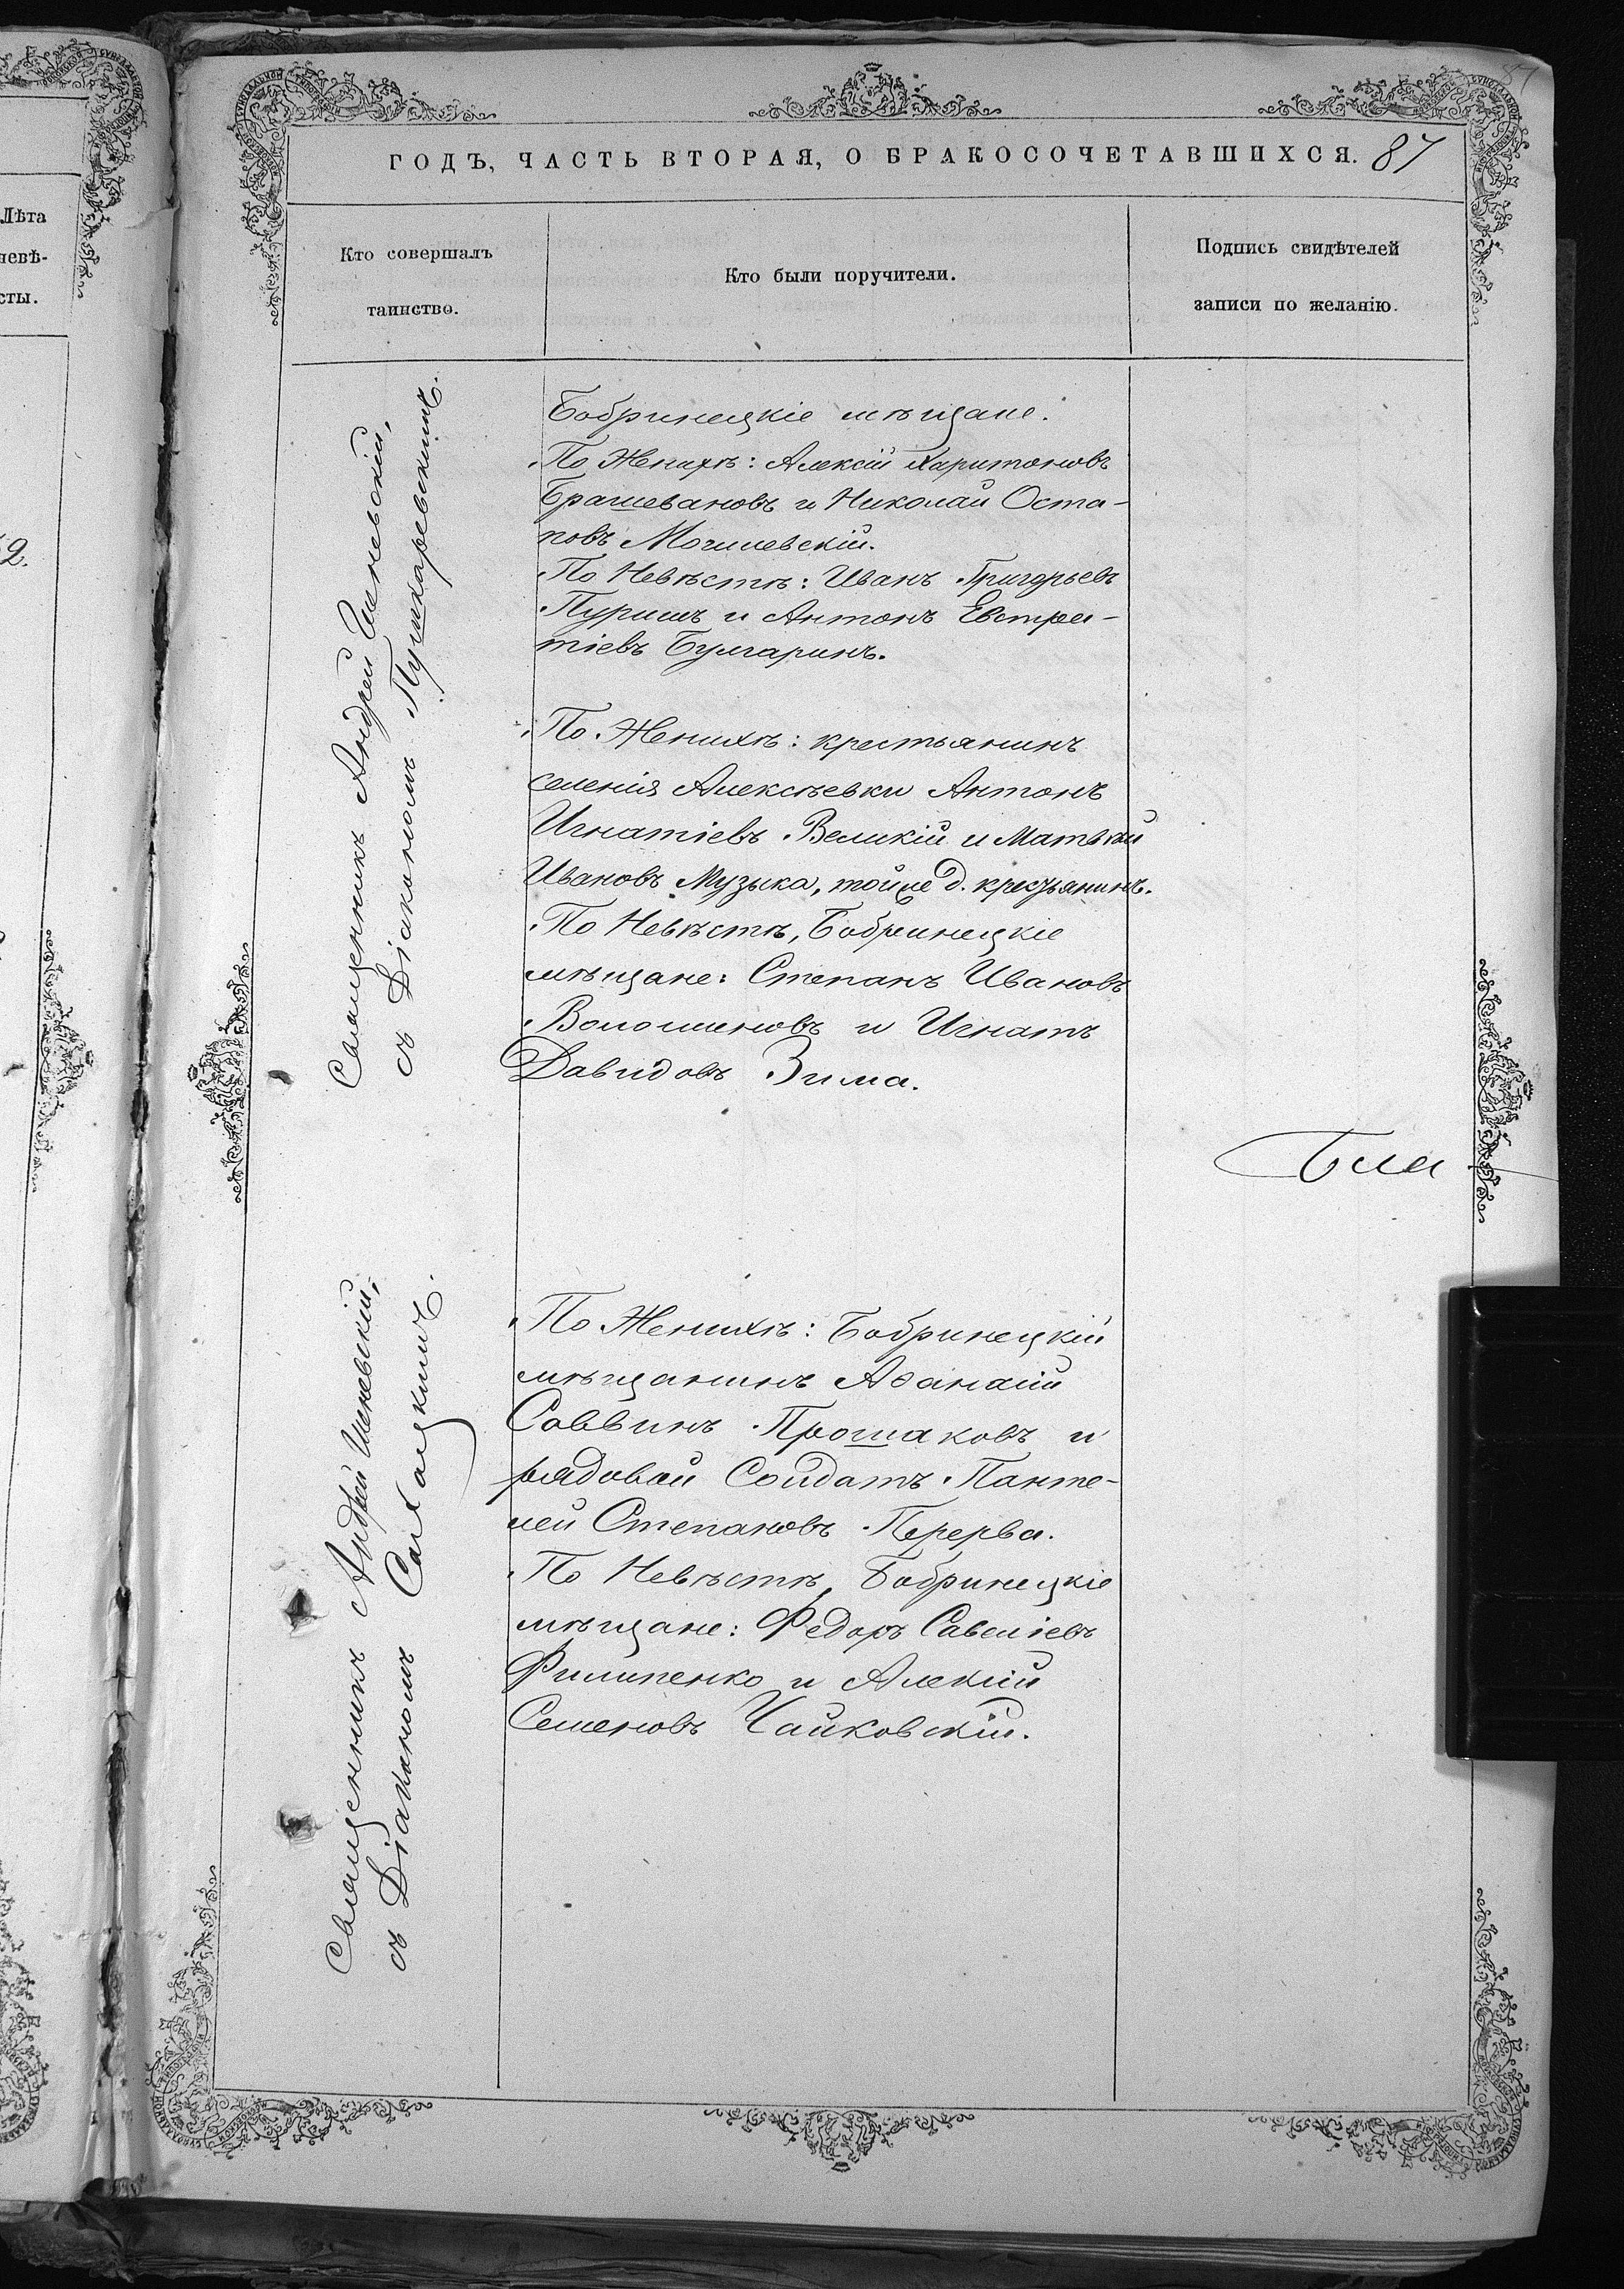 87
ГОДЪ, ЧАСТЬ ВТОРАЯ, О БРАКОСОЧЕТАВШИХСЯ. 87
Лѣта
невѣ-
сты.
Кто совершалъ
таинство.
Кто были поручители.
Подпись свидѣтелей
записи по желанію.
2.
Священникъ Андрей
съ Діакономъ Пушкаревскимъ.
Бобринецкіе мѣщане.
По Женихѣ: Алексій Харитоновъ
Брашевановъ и Николай Оста-
повъ Могилевскій.
По Невѣстѣ: Иванъ Григорьевъ
Пуришъ и Антонъ Евстра-
тіевъ Булгаринъ.
По Женихѣ: крестьянинъ
селенія Алексѣевки Антонъ
Игнатіевъ Великій и Матвѣй
Ивановъ Музыка, тойже д. крестьянинъ.
По Невѣстѣ, Бобринецкіе
мѣщане: Степанъ Ивановъ
Волошиновъ и Игнатъ
Давидовъ Зима.
Бла
Священникъ Андрей
съ Діакономъ
По Женихѣ: Бобринецкій
мѣщанинъ Аѳанасій
Саввинъ Прошаковъ и
рядовой Солдатъ Панте-
лей Степановъ Перерва.
По Невѣстѣ, Бобринецкіе
мѣщане: Федоръ Савеліевъ
Филипенко и Алексій
Семеновъ Чайковскій.